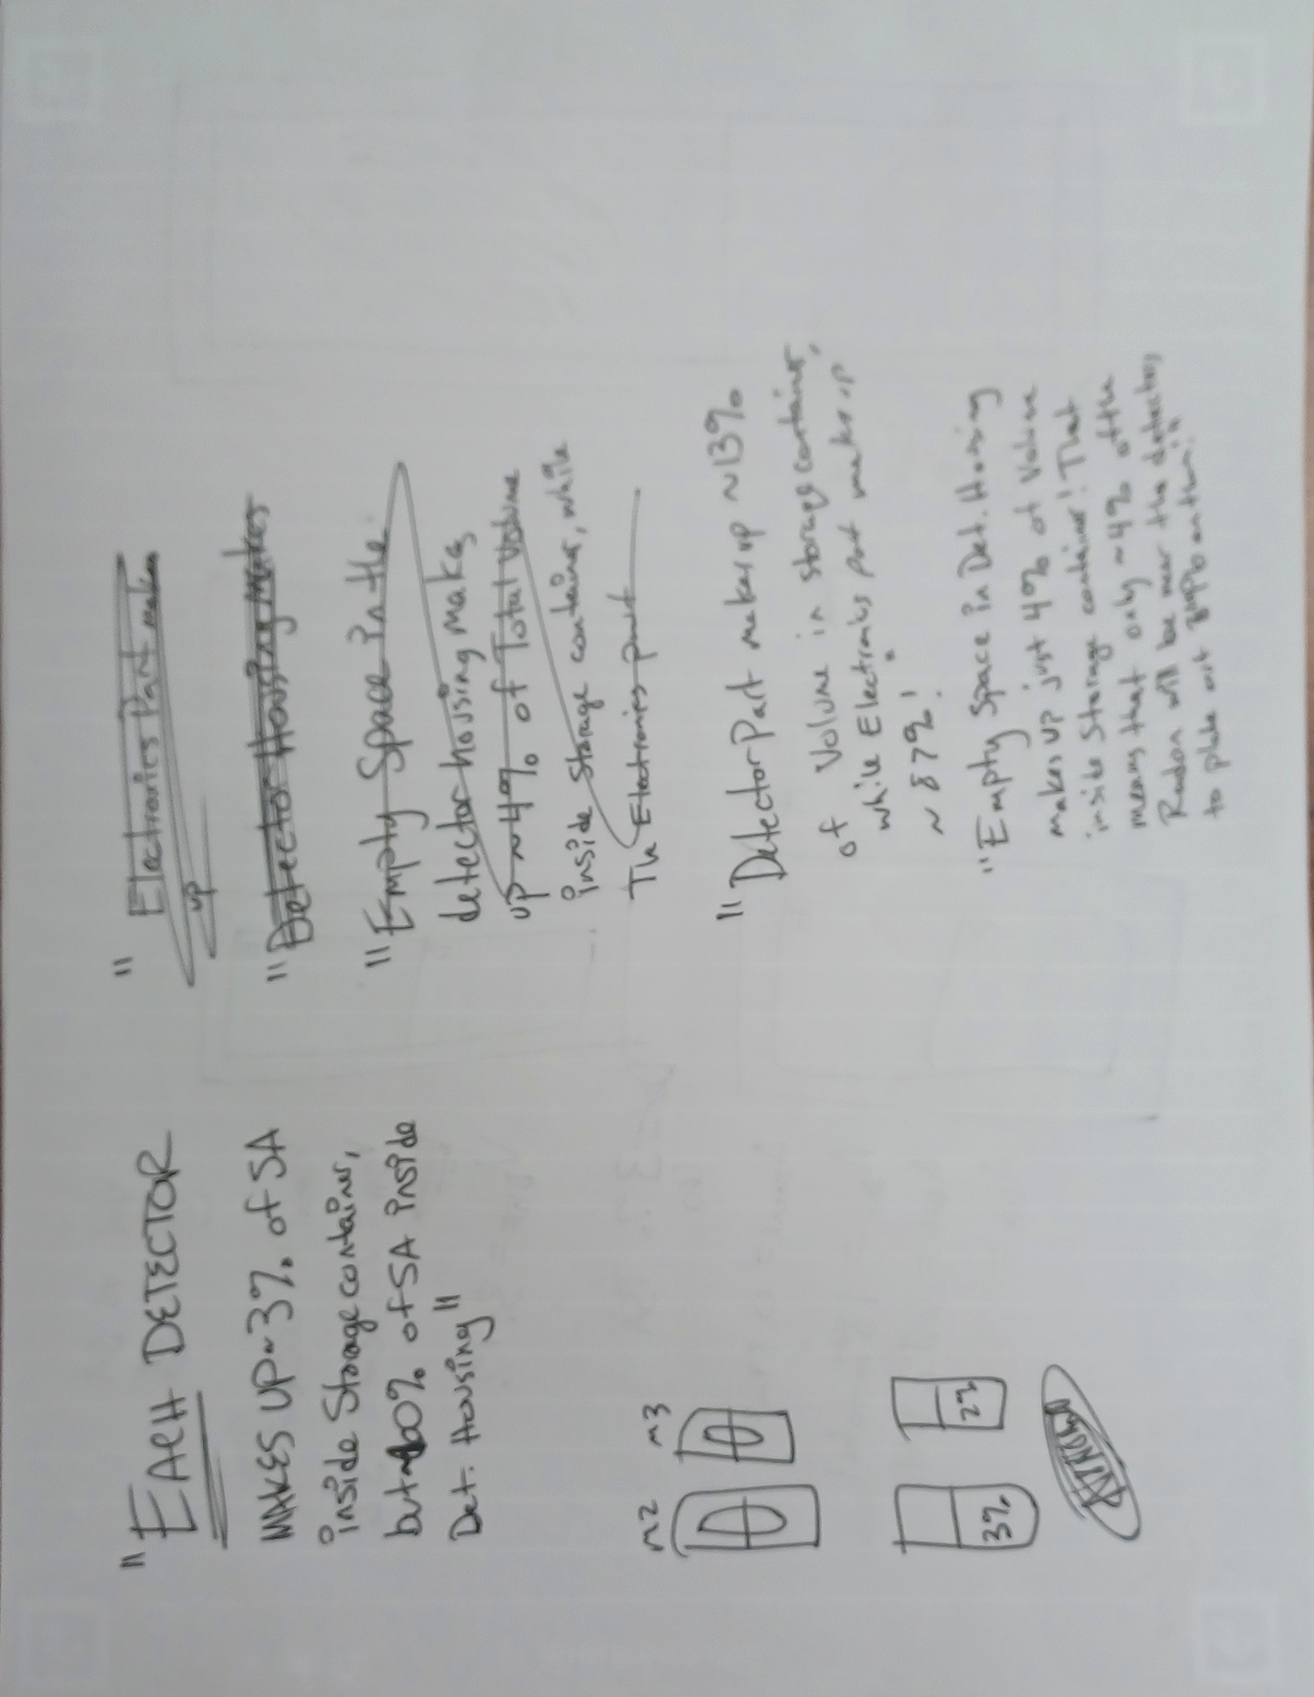 "EACH DETECTOR
MAKES UP ~3% of SA
inside Storage container,
but ~100% of SA inside
Det. Housing"
m2 m3
3% 2%
" Electronics Part makes
up
"Detector Housing Makes
"Empty Space in the
detector housing makes
up ~4% of Total Volume
inside storage container, while
The Electronics part
"Detector Part makes up ~13%
of Volume in storage container,
while Electronics part makes up
~87%!
"Empty Space in Det. Housing
makes up just 4% of Volume
inside Storage container! That
means that only ~4% of the
Radon will be near the detectors
to plate out on them!"